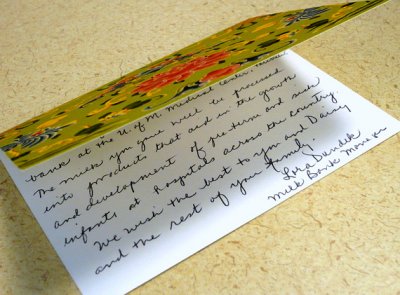 bank at the U of M. Medical Center,
The milk you give will be processed
into products that aid in the growth
and development of preterm and sick
infants at Hospitals across the Country.
We wish the best to you and Daisy
and the rest of your family.
Lora Dundek
Milk Bank Manager